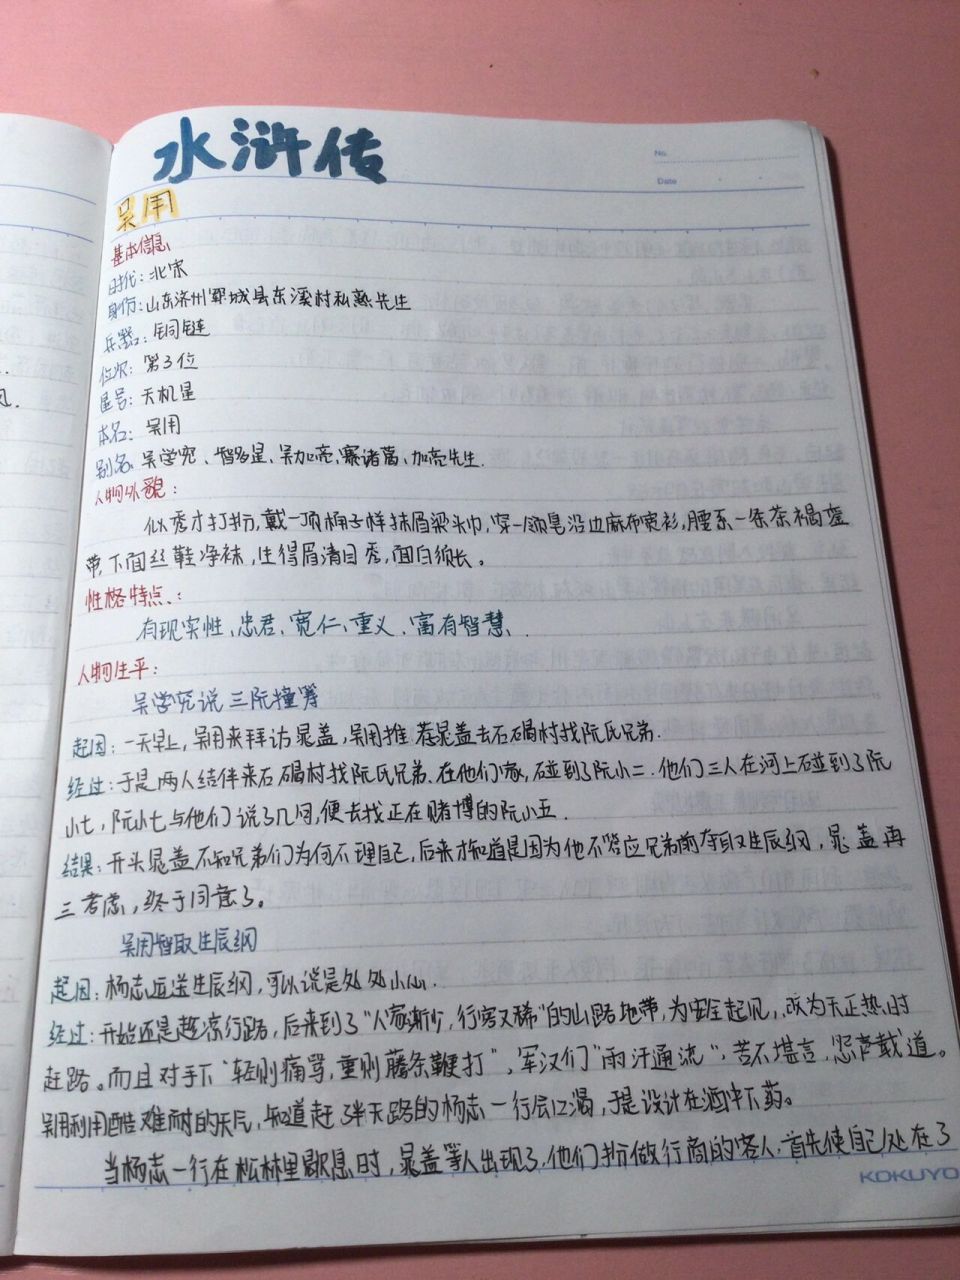 水浒传
No.
Date
吴用
基本信息
时代：北宋
身份：山东济州郓城县东溪村私塾先生
兵器：铜链
位次：第3位
星号：天机星
本名：吴用
别名：吴学究、智多星、吴加亮、赛诸葛、加亮先生.
人物外貌：
似秀才打扮，戴一顶桶子样抹眉梁头巾，穿一领皂沿边麻布宽衫，腰系一条茶褐銮
带，下面丝鞋净袜，生得眉清目秀，面白须长。
性格特点：
有现实性、忠君、宽仁、重义、富有智慧、.
人物生平：
吴学究说三阮撞筹
起因：一天早上，吴用来拜访晁盖，吴用推惹晁盖去石碣村找阮氏兄弟.
经过：于是两人结伴来石碣村找阮氏兄弟.在他们家，碰到了阮小二.他们三人在河上碰到了阮
小七，阮小七与他们说了几句，便去找正在赌博的阮小五.
结果：开头晁盖不知兄弟们为何不理自己，后来才知道是因为他不答应兄弟前夺取生辰纲，晁盖再
三考虑，终于同意了。
吴用智取生辰纲
起因：杨志运送生辰纲，可以说是处处小心.
经过：开始还是趁凉行路，后来到了“人家渐少，行客又稀”的山路地带，为安全起见，改为天正热时
赶路。而且对手下“轻则痛骂，重则藤条鞭打”，军汉们“雨汗通流”，苦不堪言，怨声载道。
吴用利用酷热难耐的天气，知道赶了半天路的杨志一行会口渴，于是设计在酒中下药。
当杨志一行在松林里歇息时，晁盖等人出现了，他们扮做行商的客人，首先使自己处在了
KOKUYO